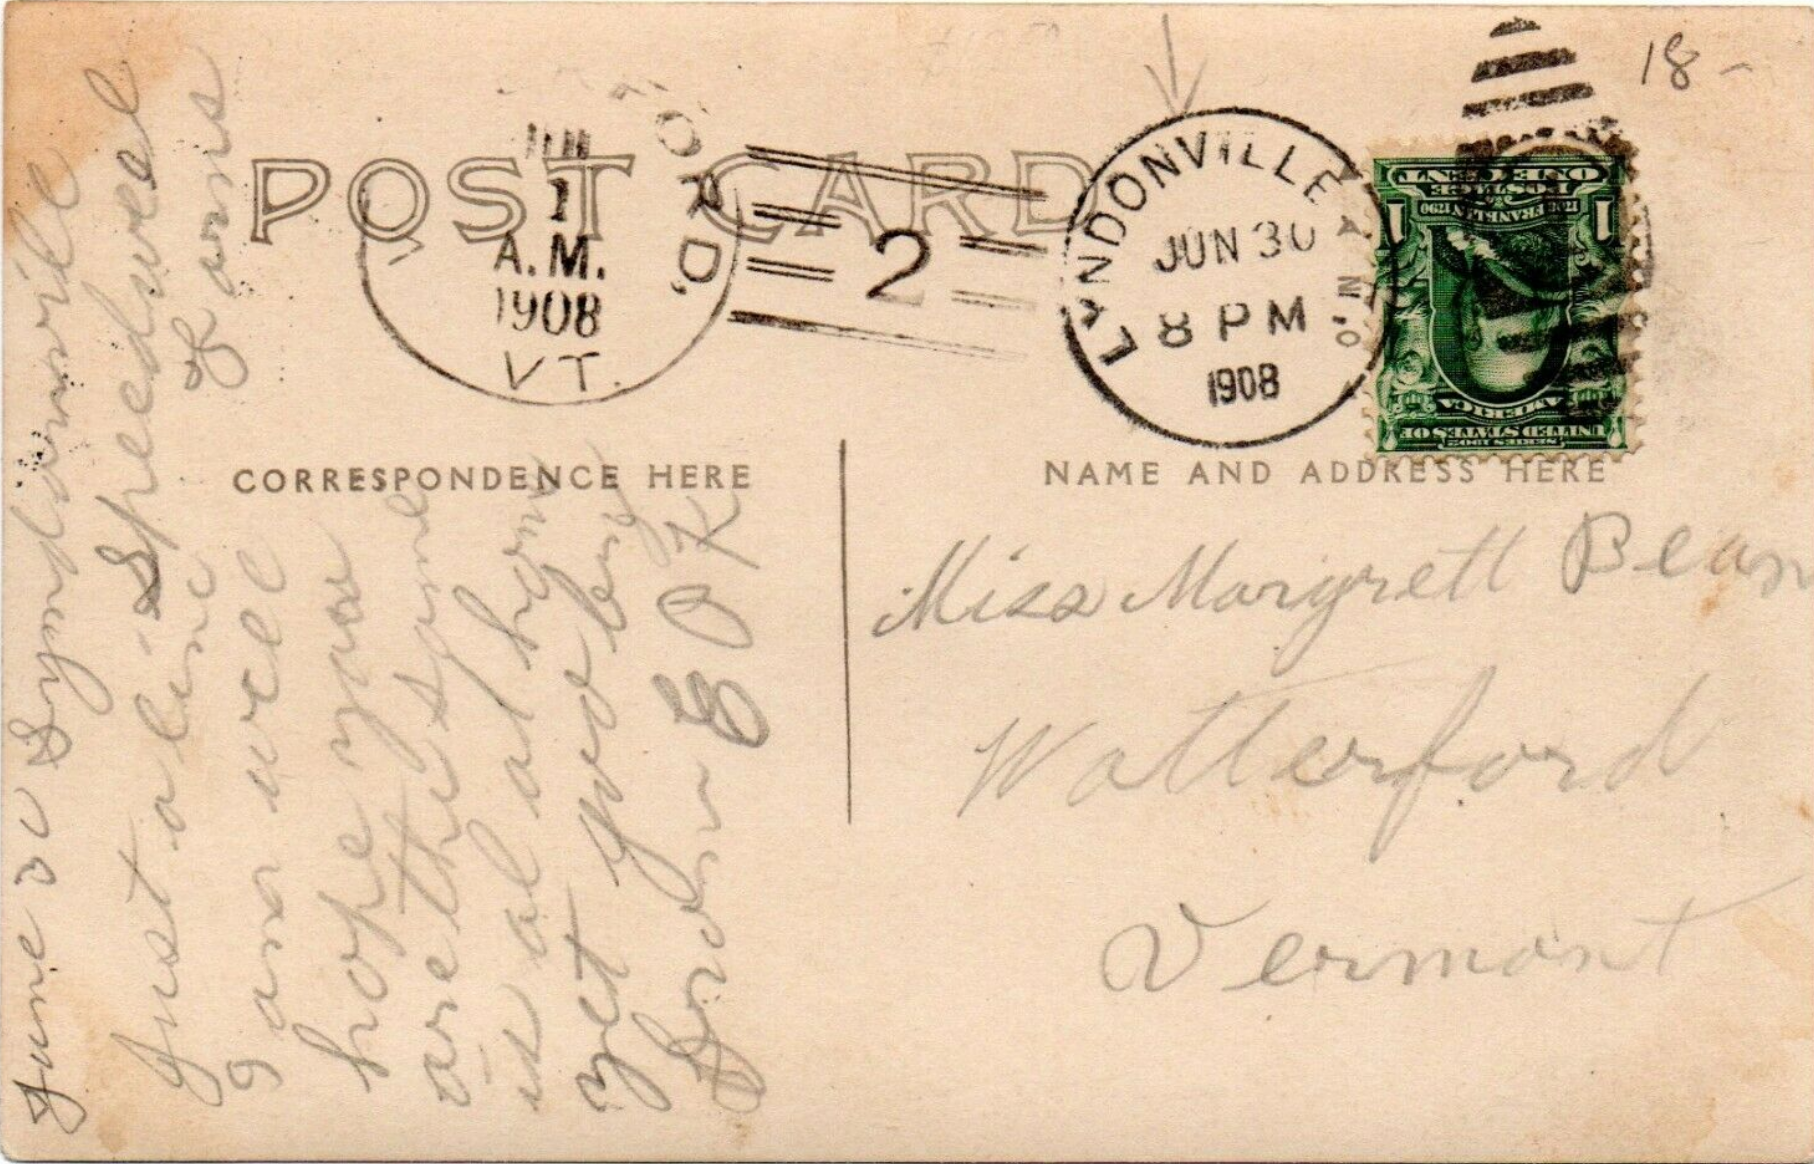 18 -
ORD,
1
A.M.
1908
VT.
2
LYNDONVILLE
JUN 30
8 PM
1908
POST CARD
ONE CENT
POSTAGE
1 FRANKLIN 1790 1
SERIES 1902
UNITED STATES OF
AMERICA
CORRESPONDENCE HERE
NAME AND ADDRESS HERE
June 30 Lyndonville
Just a line
Speedwell
Farms
I am well
hope you
are the same
is al at hom
yet good by
from E O K
Miss Margrett Bean
Watterford
Vermont